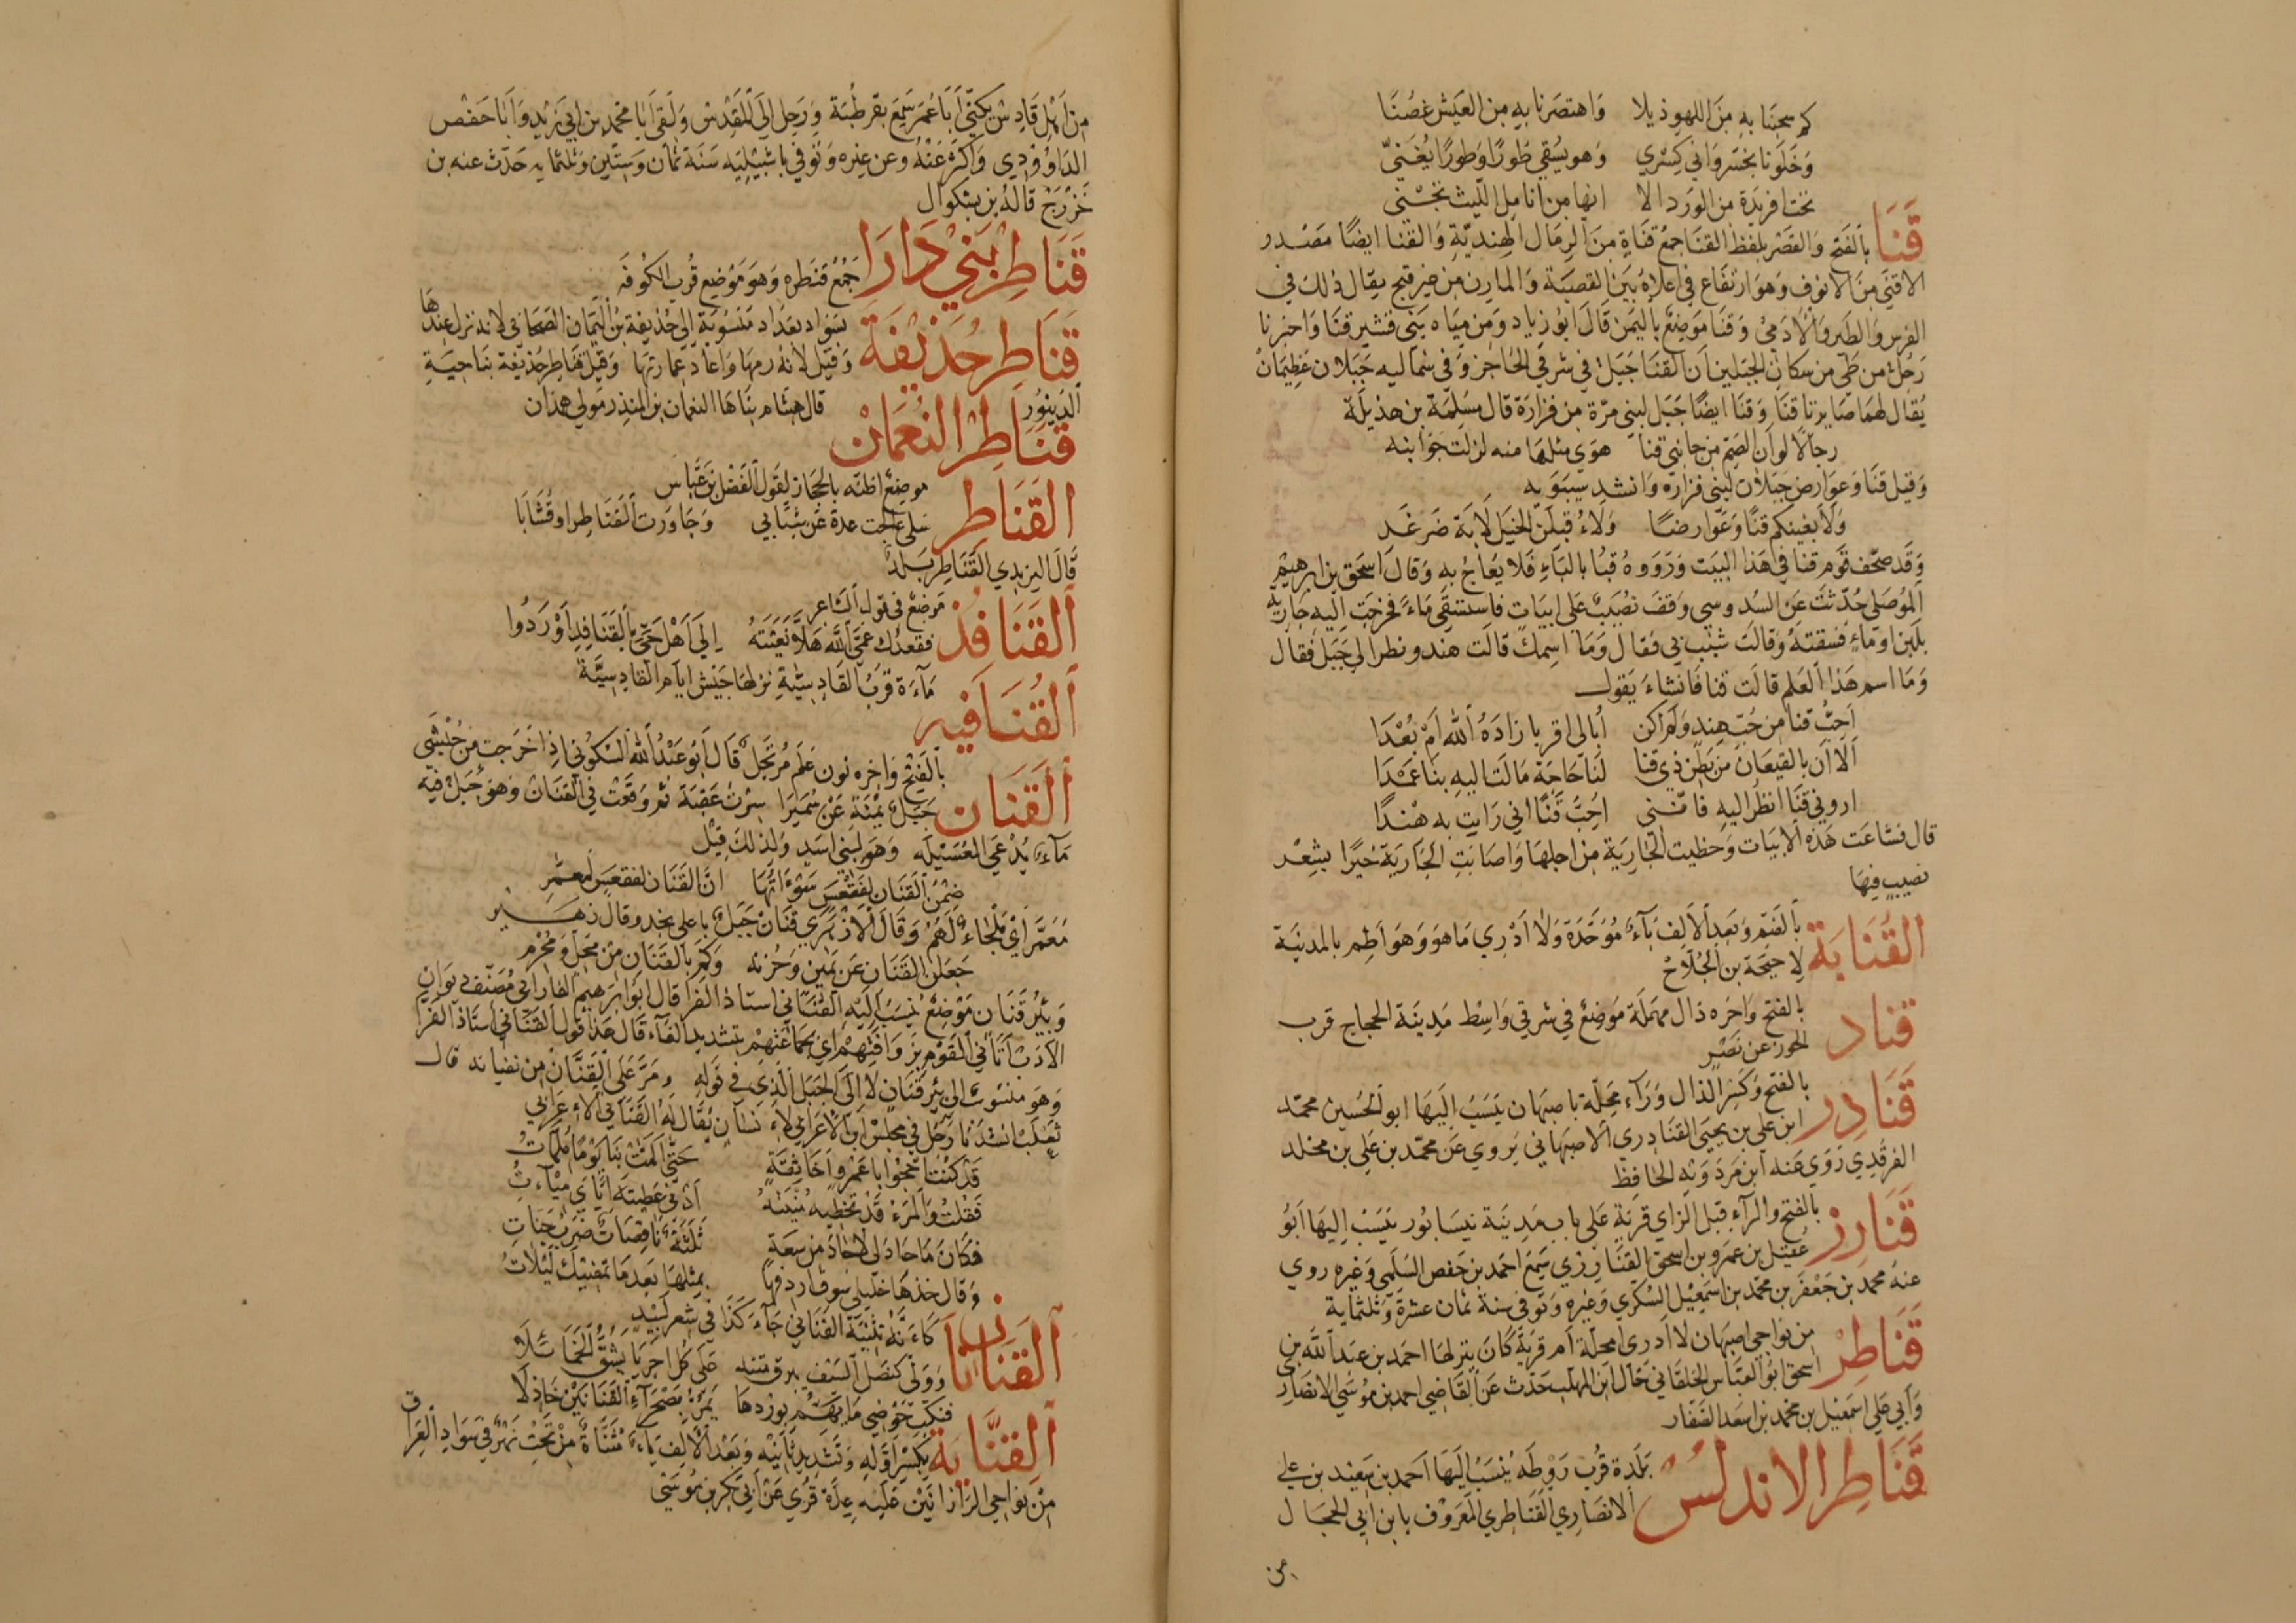 كم سحبنا به من اللهو ذيلا واهتصرنا به من العيش غصنا
وخلونا بخسرواني كسري وهو يسقي طورًا وطورًا يغني
تحت افريدة من الورد الا انها من انامل الليث تجني
قَنَا بالفتح والقصر بلفظ القنا جمع قناة من الرمال الهندية والقنا ايضًا مصدر
الاقنى من الانوف وهو ارتفاع في اعلاه بين القصبة والمارن من غير قبح يقال ذلك في
الفرس والطير والآدمي وقنا موضع باليمن قال ابو زياد ومن مياه بني قشير قنا واخبرنا
رجل من طي من سكان الجبلين ان القنا جبل في شرقي الحاجز وفي شماليه جبلان عظيمان
يقال لهما صايرتا قنا وقنا ايضًا جبل لبني مرة من فزارة قال مسلمة بن هذيلة
رجالًا لو ان الصم من جانبي قنا هوي مثلها منه لزلت جوانبه
وقيل قنا وعوارض جبلان لبني فزارة وانشد سيبويه
ولا بغينكم قنًا وعوارضًا ولاء قبلن الخيل لابة ضرغد
وقد صحف قوم قنا في هذا البيت ورووه قبًا بالباء فلا يعاج به وقال اسحق بن ابرهيم
الموصلي حُدّثت عن السدوسي وقف نصيب على ابيات فاستسقى ماءً فخرجت اليه جارية
بلبن او ماء فسقته وقالت شبب بي فقال وما اسمك قالت هند ونظر الي جبل فقال
وما اسم هذا العلم قالت قنا فانشاء يقول
احب قنا من حب هند ولم اكن ابالي اقربا زاده الله ام بعدا
الا ان بالقيعان من بطن ذي قنا لنا حاجة مالت اليه بنا عمدا
اروني قنا انظر اليه فانني احب قنًا اني رايت به هندًا
قال فشاعت هذه الابيات وحظيت الجارية من اجلها واصابت الجارية خيرًا بشعر
نصيب فيها
القُنَابَة بالضم وبعد الالف باء موحدة ولا ادري ما هو وهو اطم بالمدينة
لاحيحة بن الجلاح
قناد بالفتح واخره دال مهملة موضع في شرقي واسط مدينة الحجاج قرب
الحوز عن نصر
قَنَادِر بالفتح وكسر الدال وراء محلة باصبهان ينسب اليها ابو الحسين محمد
ابن علي بن يحيى القنادري الاصبهاني يروي عن محمد بن علي بن مخلد
الفرقدي روي عنه ابن مردويه الحافظ
قَنَارِز بالفتح والراء قبل الزاي قرية على باب مدينة نيسابور ينسب اليها ابو
عقيل بن عمرو بن اسحق القنارزي سمع احمد بن حفص السلمي وغيره روي
عنه محمد بن جعفر بن محمد بن اسمعيل السكري وغيره وتوفي سنة ثمان عشرة وثلثماية
قَنَاطِر من نواحي اصبهان لا ادري امحلة ام قرية كان ينزلها احمد بن عبد الله بن
اسحق ابو العباس الخلقاني خال ابن المهلب حدث عن القاضي احمد بن موسى الانصاري
وابي علي اسمعيل بن محمد بن اسعد الصفار
قَنَاطِر الاندلس بلدة قرب روطه ينسب اليها احمد بن سعيد بن علي
الانصاري القناطري المعروف بابن ابي الحجال
من
من اهل قادش يكنى ابا عمر سمع بقرطبة ورحل الى المقدس ولقي ابا محمد بن ابي زيد وابا حفص
الداوودي واكثر عنه وعن غيره وتوفي باشبيليه سنة ثمان وستين وثلثمايه حدث عنه بن
خزرج قاله بن بشكوال
قَنَاطِر بَنِي دَارَا جمع قنطره وهو موضع قرب الكوفه
قَنَاطِر حُذَيفَة بسواد بغداد منسوبة الي حذيفة بن اليمان الصحابي لانه نزل عندها
وقيل لانه رمها واعاد عمارتها وقيل قناطر حذيفة بناحية
الدينور
قَنَاطِر النُعمَان قال هشام بناها النعمان بن المنذر مولي همدان
القَنَاطِر موضع اظنه بالحجاز لقول الفضل بن عباس
سلي عالجت عدة عن شبابي وجاورت القناطر او قشابا
قال اليزيدي القناطر بلد
القَنَافُذ موضع في قول الشاعر
فقعدك عمي الله هلا نعيته الي اهل حي بالقنافذ اوردوا
القُنَافِيه ماءة قرب القادسية نزلها جيش ايام القادسية
القَنَان بالفتح واخره نون علم مرتجل قال ابو عبد الله السكوني اذا خرجت من حبشى
جبل يمنة عن سميرا سرت عقبة ثم وقعت في القنان وهو جبل فيه
ماء يدعى العسيلة وهو لبني اسد ولذلك قيل
ضمن القنان لفقعس سوءاتها ان القنان لفقعس لمعمر
معمر اي ملجاء لهم وقال الازهري قنان جبل باعلى نجد وقال زهير
جعلن القنان عن يمين وحزنه وكم بالقنان من محل ومحرم
وبئر قنان موضع ينسب اليه القناني استاذ الفرا قال ابو ابرهيم الفارابي مصنف ديوان
الادب اتاني القوم بزوافتهم اي بجماعتهم بتشديد الفاء قال هذا قول القناني استاذ الفرا
وهو منسوب الى بئر قنان لا الى الجبل الذي في قوله ومر على القنان من نفيانه قال
ثعلب انشدنا رجل في مجلس ابن الاعرابي لانسان يقال له القناني الاعرابي
قد كنت احجوا ابا عمرو اخا ثقة حتى المت بنا يومًا ملمات
فقلت والمرء قد تخطيه منيته ادنى عطيته اياي ميات
فكان ما جاد لي لا جاد من سعة ثلثة ناقصات ضرب جبات
وقال خذها خليلي سوف اردفها بمثلها بعد ما تمضيك ليلات
القنانان كانه تثنية القناني جاء كذا في شعر لبيد
وولى كنصل السيف يبرق متنه على كل اجريا يشق الخمائلا
فنكب حوضي ما يهم بوردها يمر بصحراء القنانين خاذلا
القِنَّايَة بكسر اوله وتشديد ثانيه وبعد الالف ياء مثناة من تحت نهر في سواد العراق
من نواحي الراذانين عليه عدة قرى عن ابي بكر بن موسى